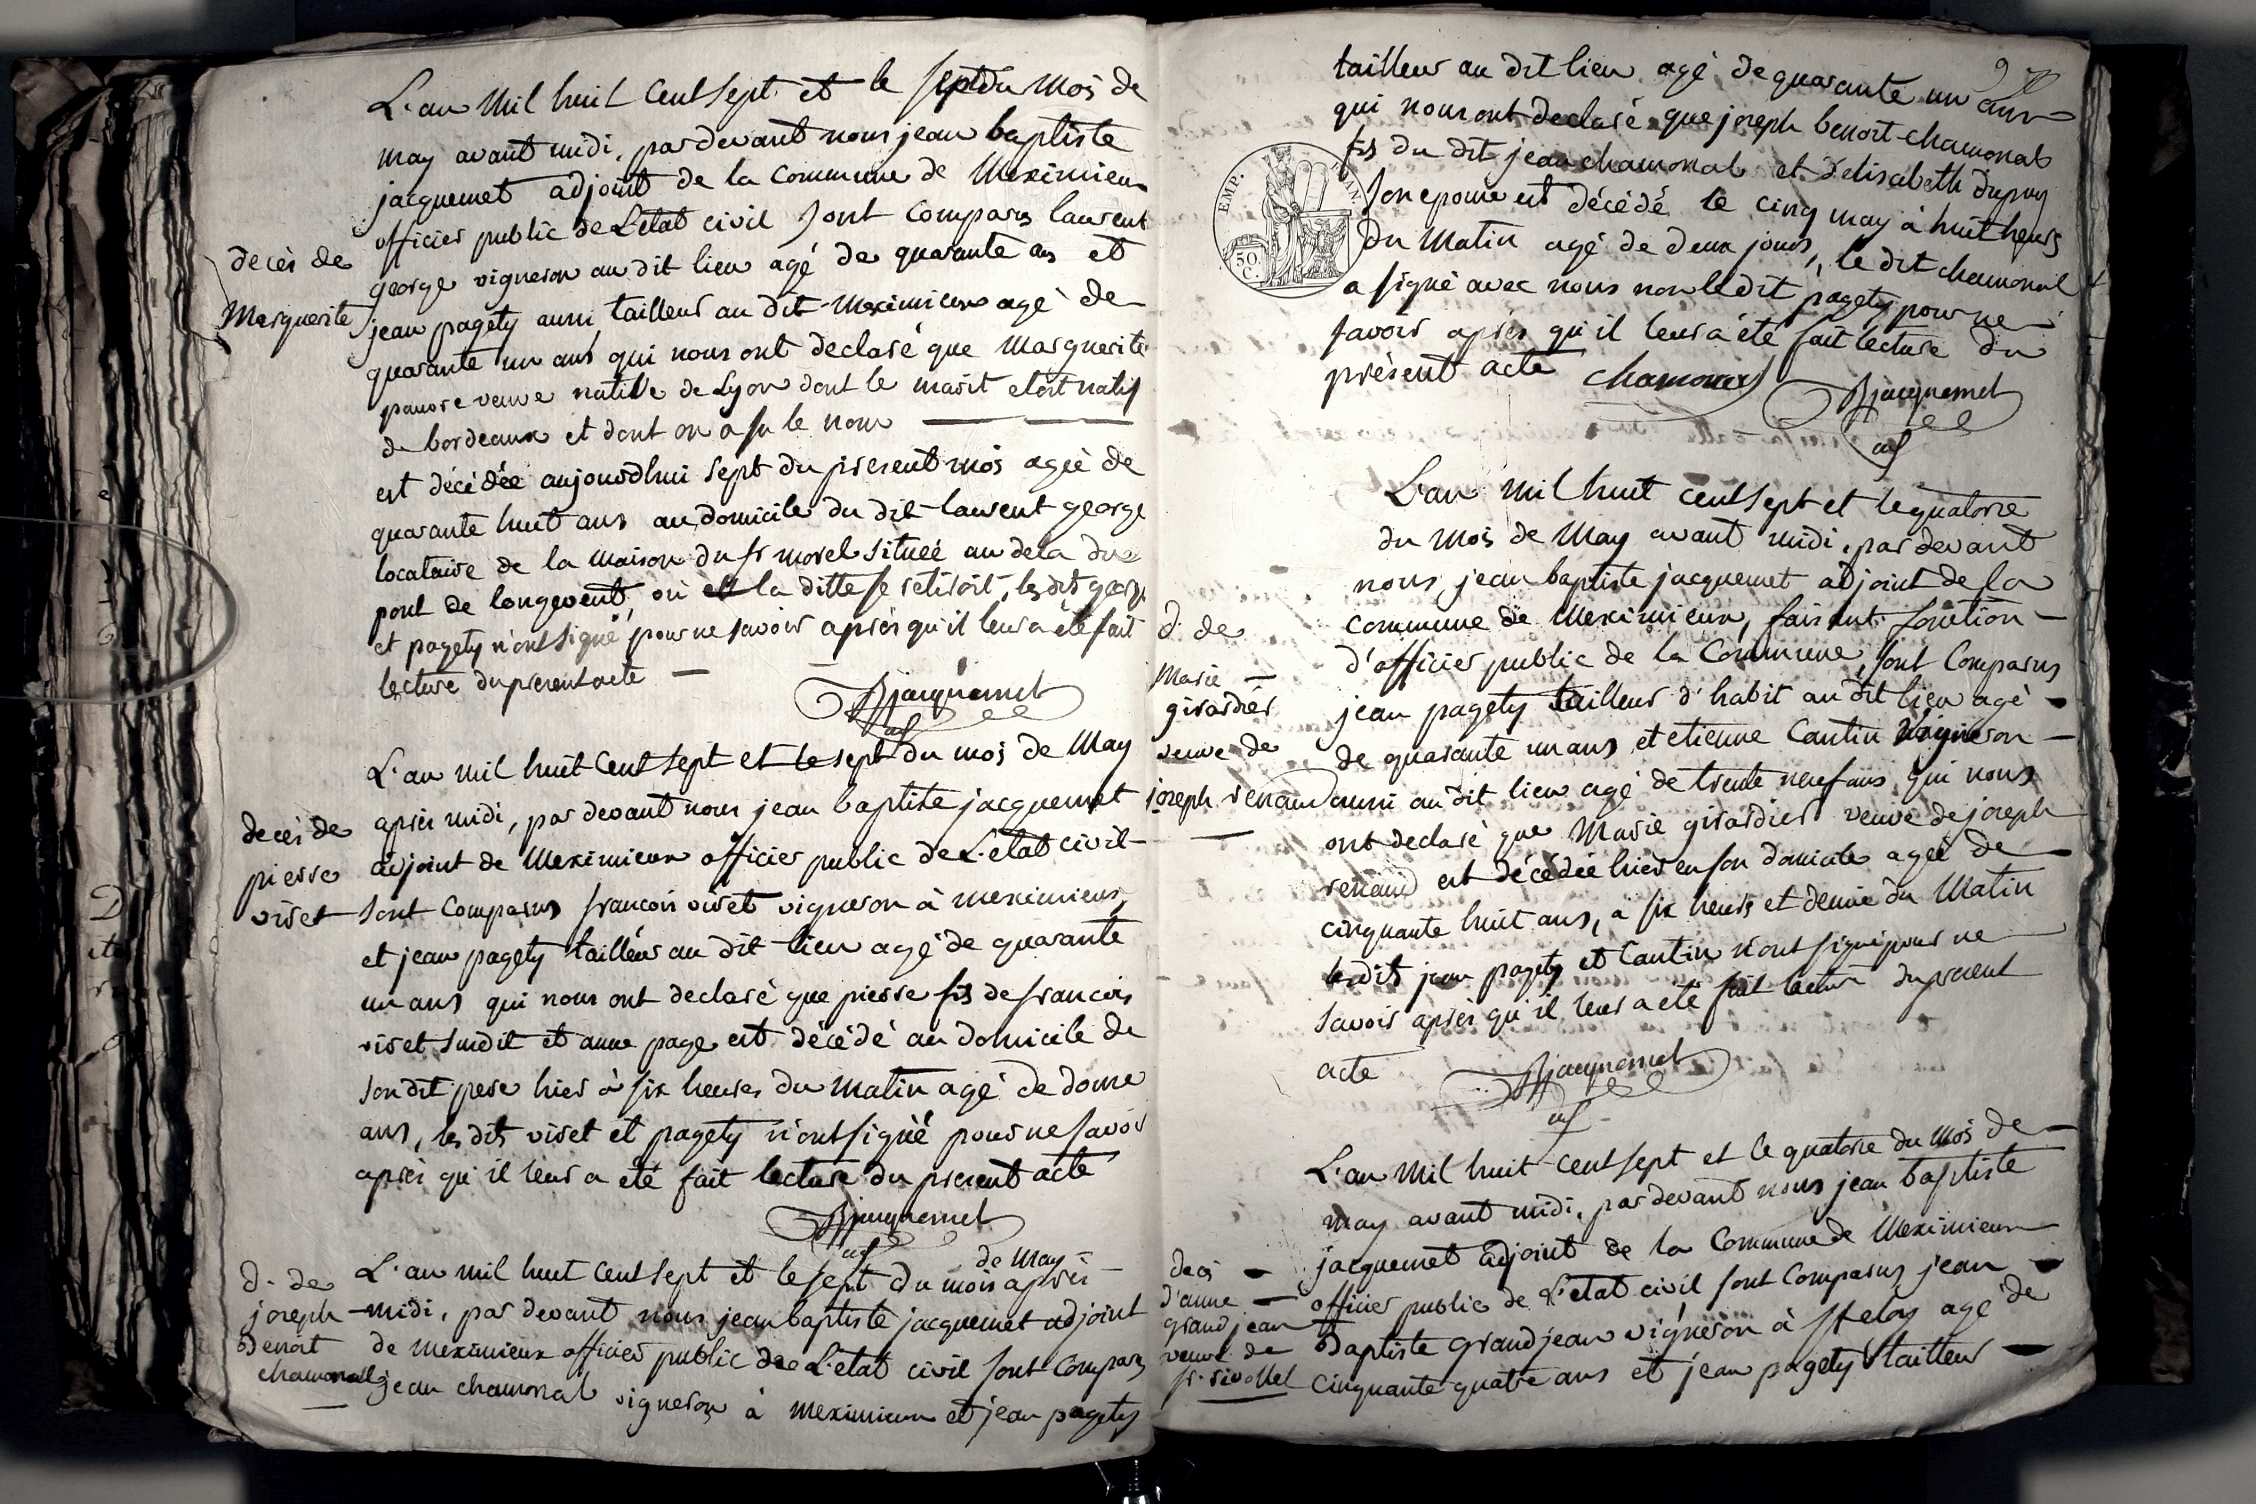 L'an mil huit Cent Sept et le sept du mois de
may avant midi, pardevant nous jean baptiste
jacquemet adjoint de la Commune de Meximieux
officier public de L'etat civil Sont Comparus laurent
george vigneron au dit lieu agé de quarante ans et
decès de
Marguerite
jean pagety aussi tailleur au dit Meximieux agé de
quarante un ans qui nous ont declaré que Marguerite
pauvre veuve native de Lyon dont le marit etoit natif
de bordeaux et dont on a su le nom
est décédée aujourdhui sept du present mois agée de
quarante huit ans au domicile du dit laurent george
locataire de la maison du sr morel située au dela du
pont de longevent, où la ditte se retiroit, les dits george
et pagety n'ont signé pour ne savoir après qu'il leur a été fait
lecture du present acte
Bjacquemet
adj
L'an mil huit Cent Sept et le sept du mois de May
après midi, par devant nous jean baptiste jacquemet
decès de
pierre
viret
adjoint de Meximieux officier public de L'état civil
Sont Comparus francois viret vigneron à meximieux,
et jean pagety tailleur au dit lieu agé de quarante
un ans qui nous ont declaré que pierre fils de francois
viret susdit et anne page est décédé au domicile de
son dit pere hier à six heures du matin agé de douze
ans, les dits viret et pagety n'ont signé pour ne savoir
après qu'il leur a été fait lecture du present acte
Bjacquemet
adj
de May
L'an mil huit Cent Sept et le sept du mois après
d. de
joseph
Benoit
chamonal
midi, par devant nous jean baptiste jacquemet adjoint
de meximieux officier public de L'état civil sont Comparus
jean chamonal vigneron à meximieux et jean pagety
9
tailleur au dit lieu agé de quarante un ans
qui nous ont declaré que joseph benoit chamonal
fils du dit jean chamonal et d'elisabeth dupuy
son epouse est décédé le cinq may à huit heures
du Matin agé de deux jours, le dit chamonal
a signé avec nous non le dit pagety pour ne
savoir après qu'il leur a été fait lecture du
présent acte
EMP. MAN.
50 C.
chamonal
Bjacquemet
adj
L'an mil huit cent sept et le quatorze
du mois de May avant midi, par devant
nous, jean baptiste jacquemet adjoint de la
commune de Meximieux, faisant fonction
d'officier public de la Commune, sont Comparus
d. de
Marie
girardier
veuve de
joseph renaud
jean pagety tailleur d'habit au dit lieu agé
de quarante un ans et etienne Cantin vigneron
aussi au dit lieu agé de trente neuf ans qui nous
ont declaré que Marie girardier veuve de joseph
renaud est décédée hier en son domicile agée de
cinquante huit ans, à six heures et demie du Matin
les dits jean pagety et Cantin n'ont signé pour ne
savoir après qu'il leur a été fait lecture du present
acte
Bjacquemet
adj
L'an mil huit cent sept et le quatorze du mois de
may avant midi, par devant nous jean baptiste
jacquemet adjoint de la Commune de Meximieux
decès
d'anne
grand jean
veuve de
fr. rivollet
officier public de L'état civil sont Comparus jean
Baptiste Grandjean vigneron à st eloy agé de
cinquante quatre ans et jean pagety tailleur